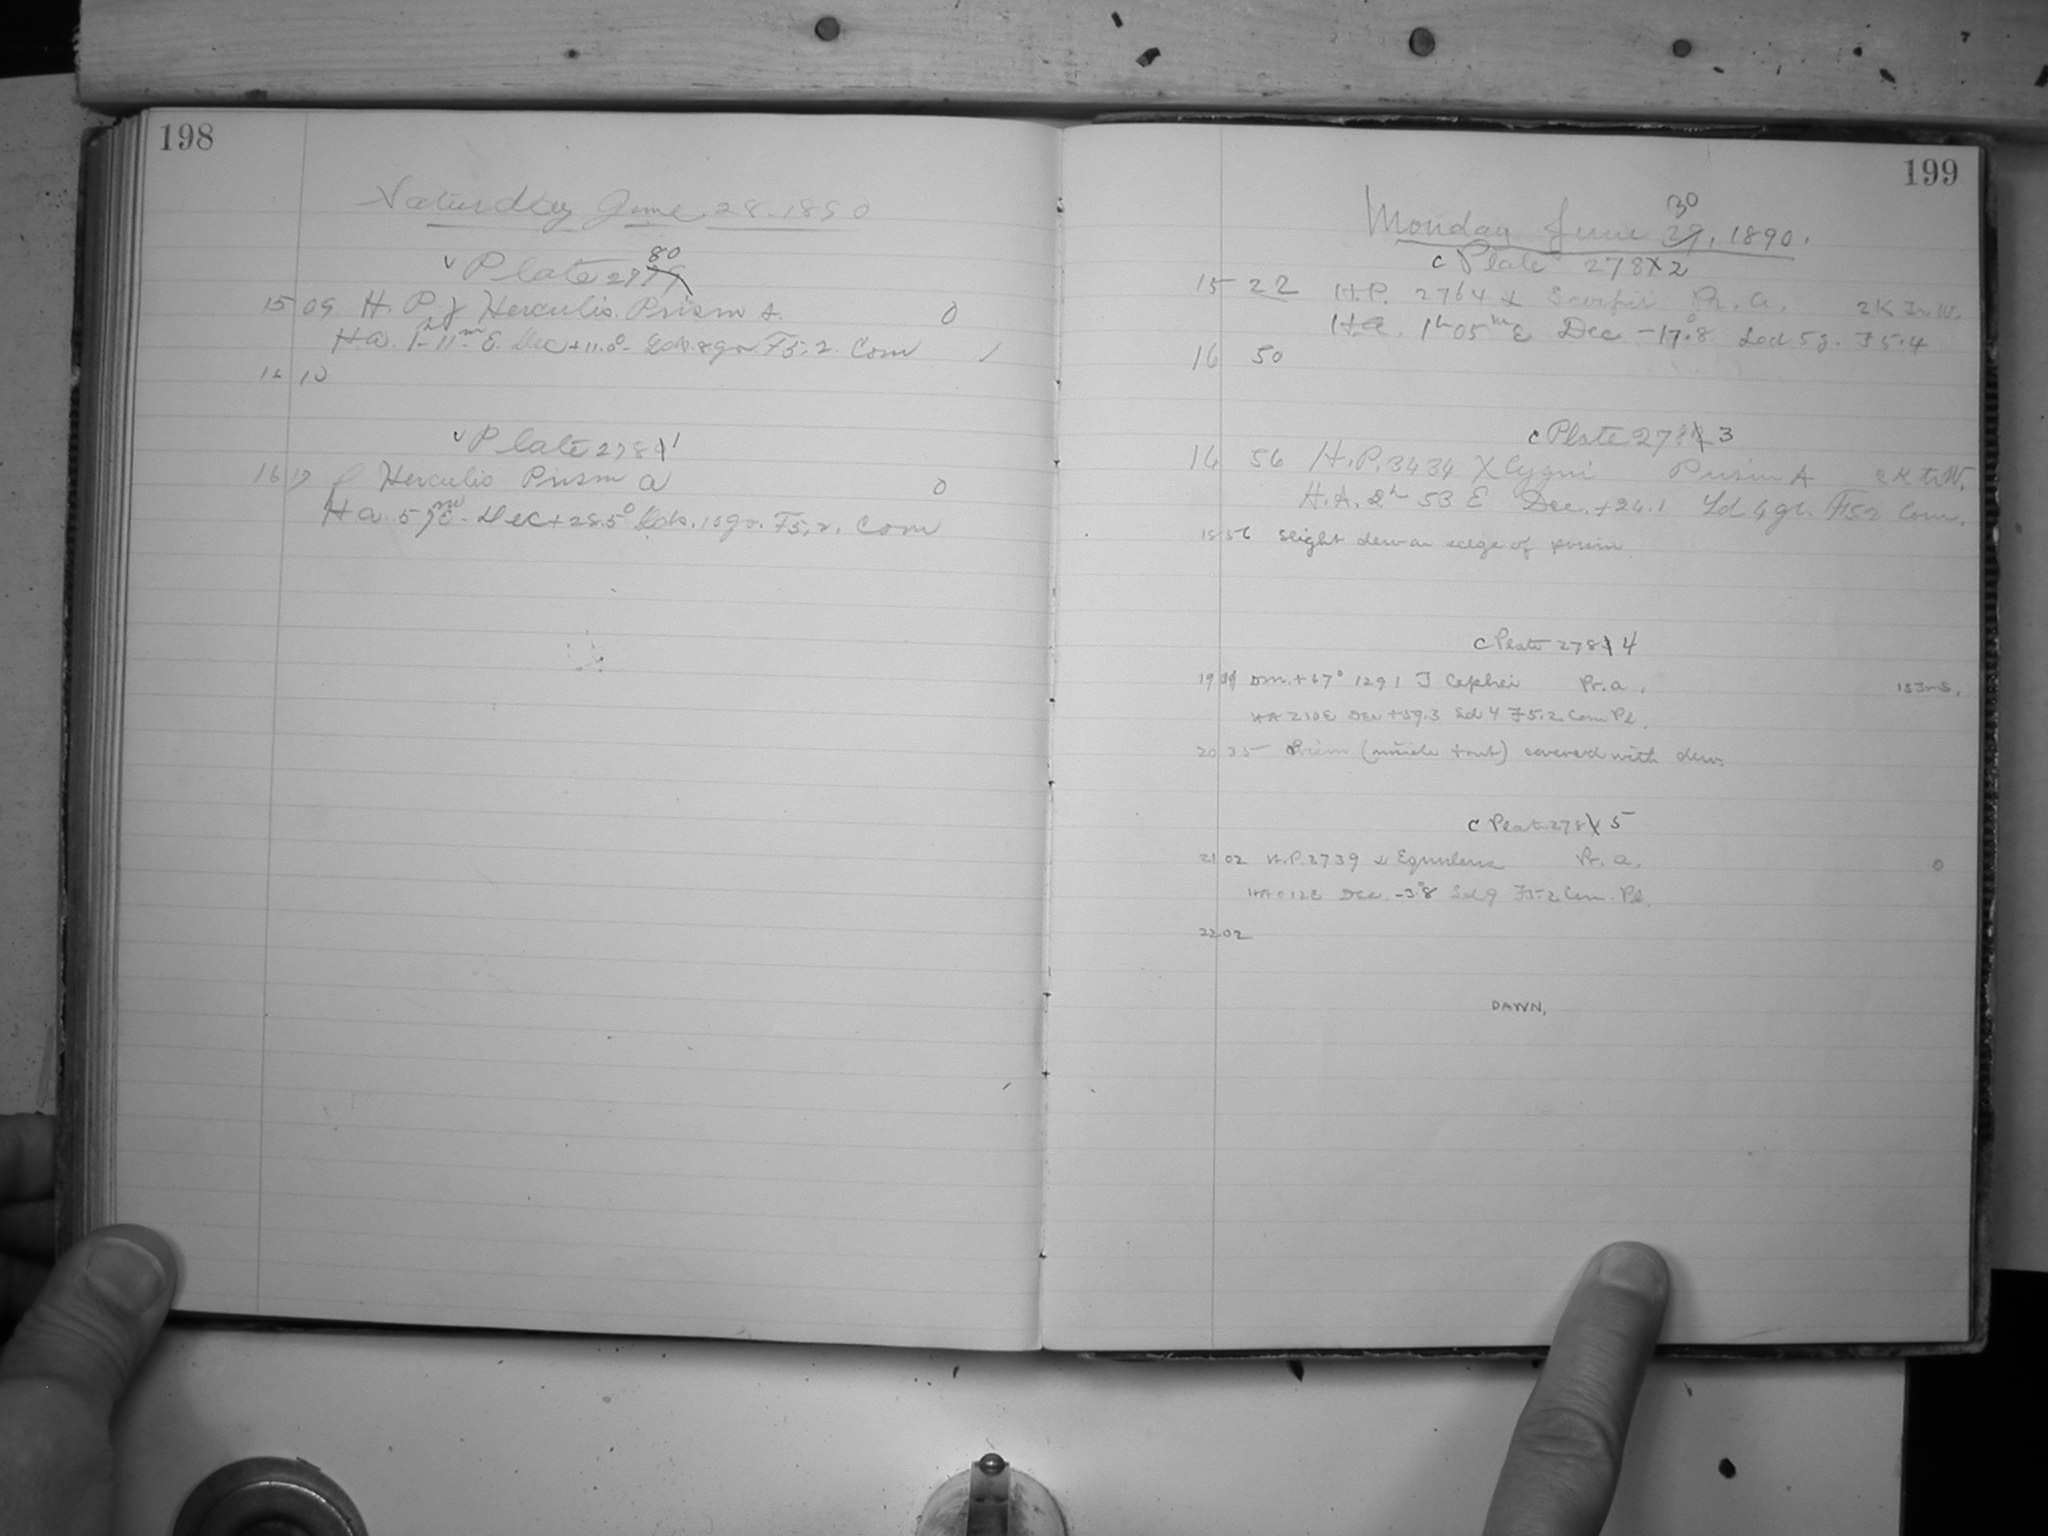 198
Saturday June 28. 1890
v Plate 2779 80
15 09 H. P. γ Herculis. Prism A. 0
H.a. 1h 11m E. Dec +11.0° Lds. 8 gr. F5.2. Com
16 10
v Plate 278 1
16 17 Herculis Prism a 0
H a. 57m E. Dec + 28.5° Lds. 10 gr. F5.2. Com
199
Monday June 29 30, 1890.
c Plate 278 2
15 22 H.P. 2764 Scorpii Pr. a. 2K Tr W.
H.a. 1h 05m E Dec -17.8 Led 5 g. F5.4
16 50
c Plate 278 3
16 56 H.P. 3434 χ Cygni Prism A 2K tr W.
H.A. 2h 53 E Dec. +24.1 Ld 4 gr. F5.2 Com.
18 56 slight dew on edge of prism.
c Plate 278 4
19 Dm. +67° 1291 T Cephei Pr. a.
HA 2 10 E Dec +59.3 Ld 4 F5.2 Com Pl.
20 35 Prism (inside + out) covered with dew.
c Plate 278 5
21 02 H.P. 3739 α Equuleus Pr. a. 0
HA 0 12 E Dec. -3.8 Ld 9 F5.2 Com. Pl.
22 02
DAWN,